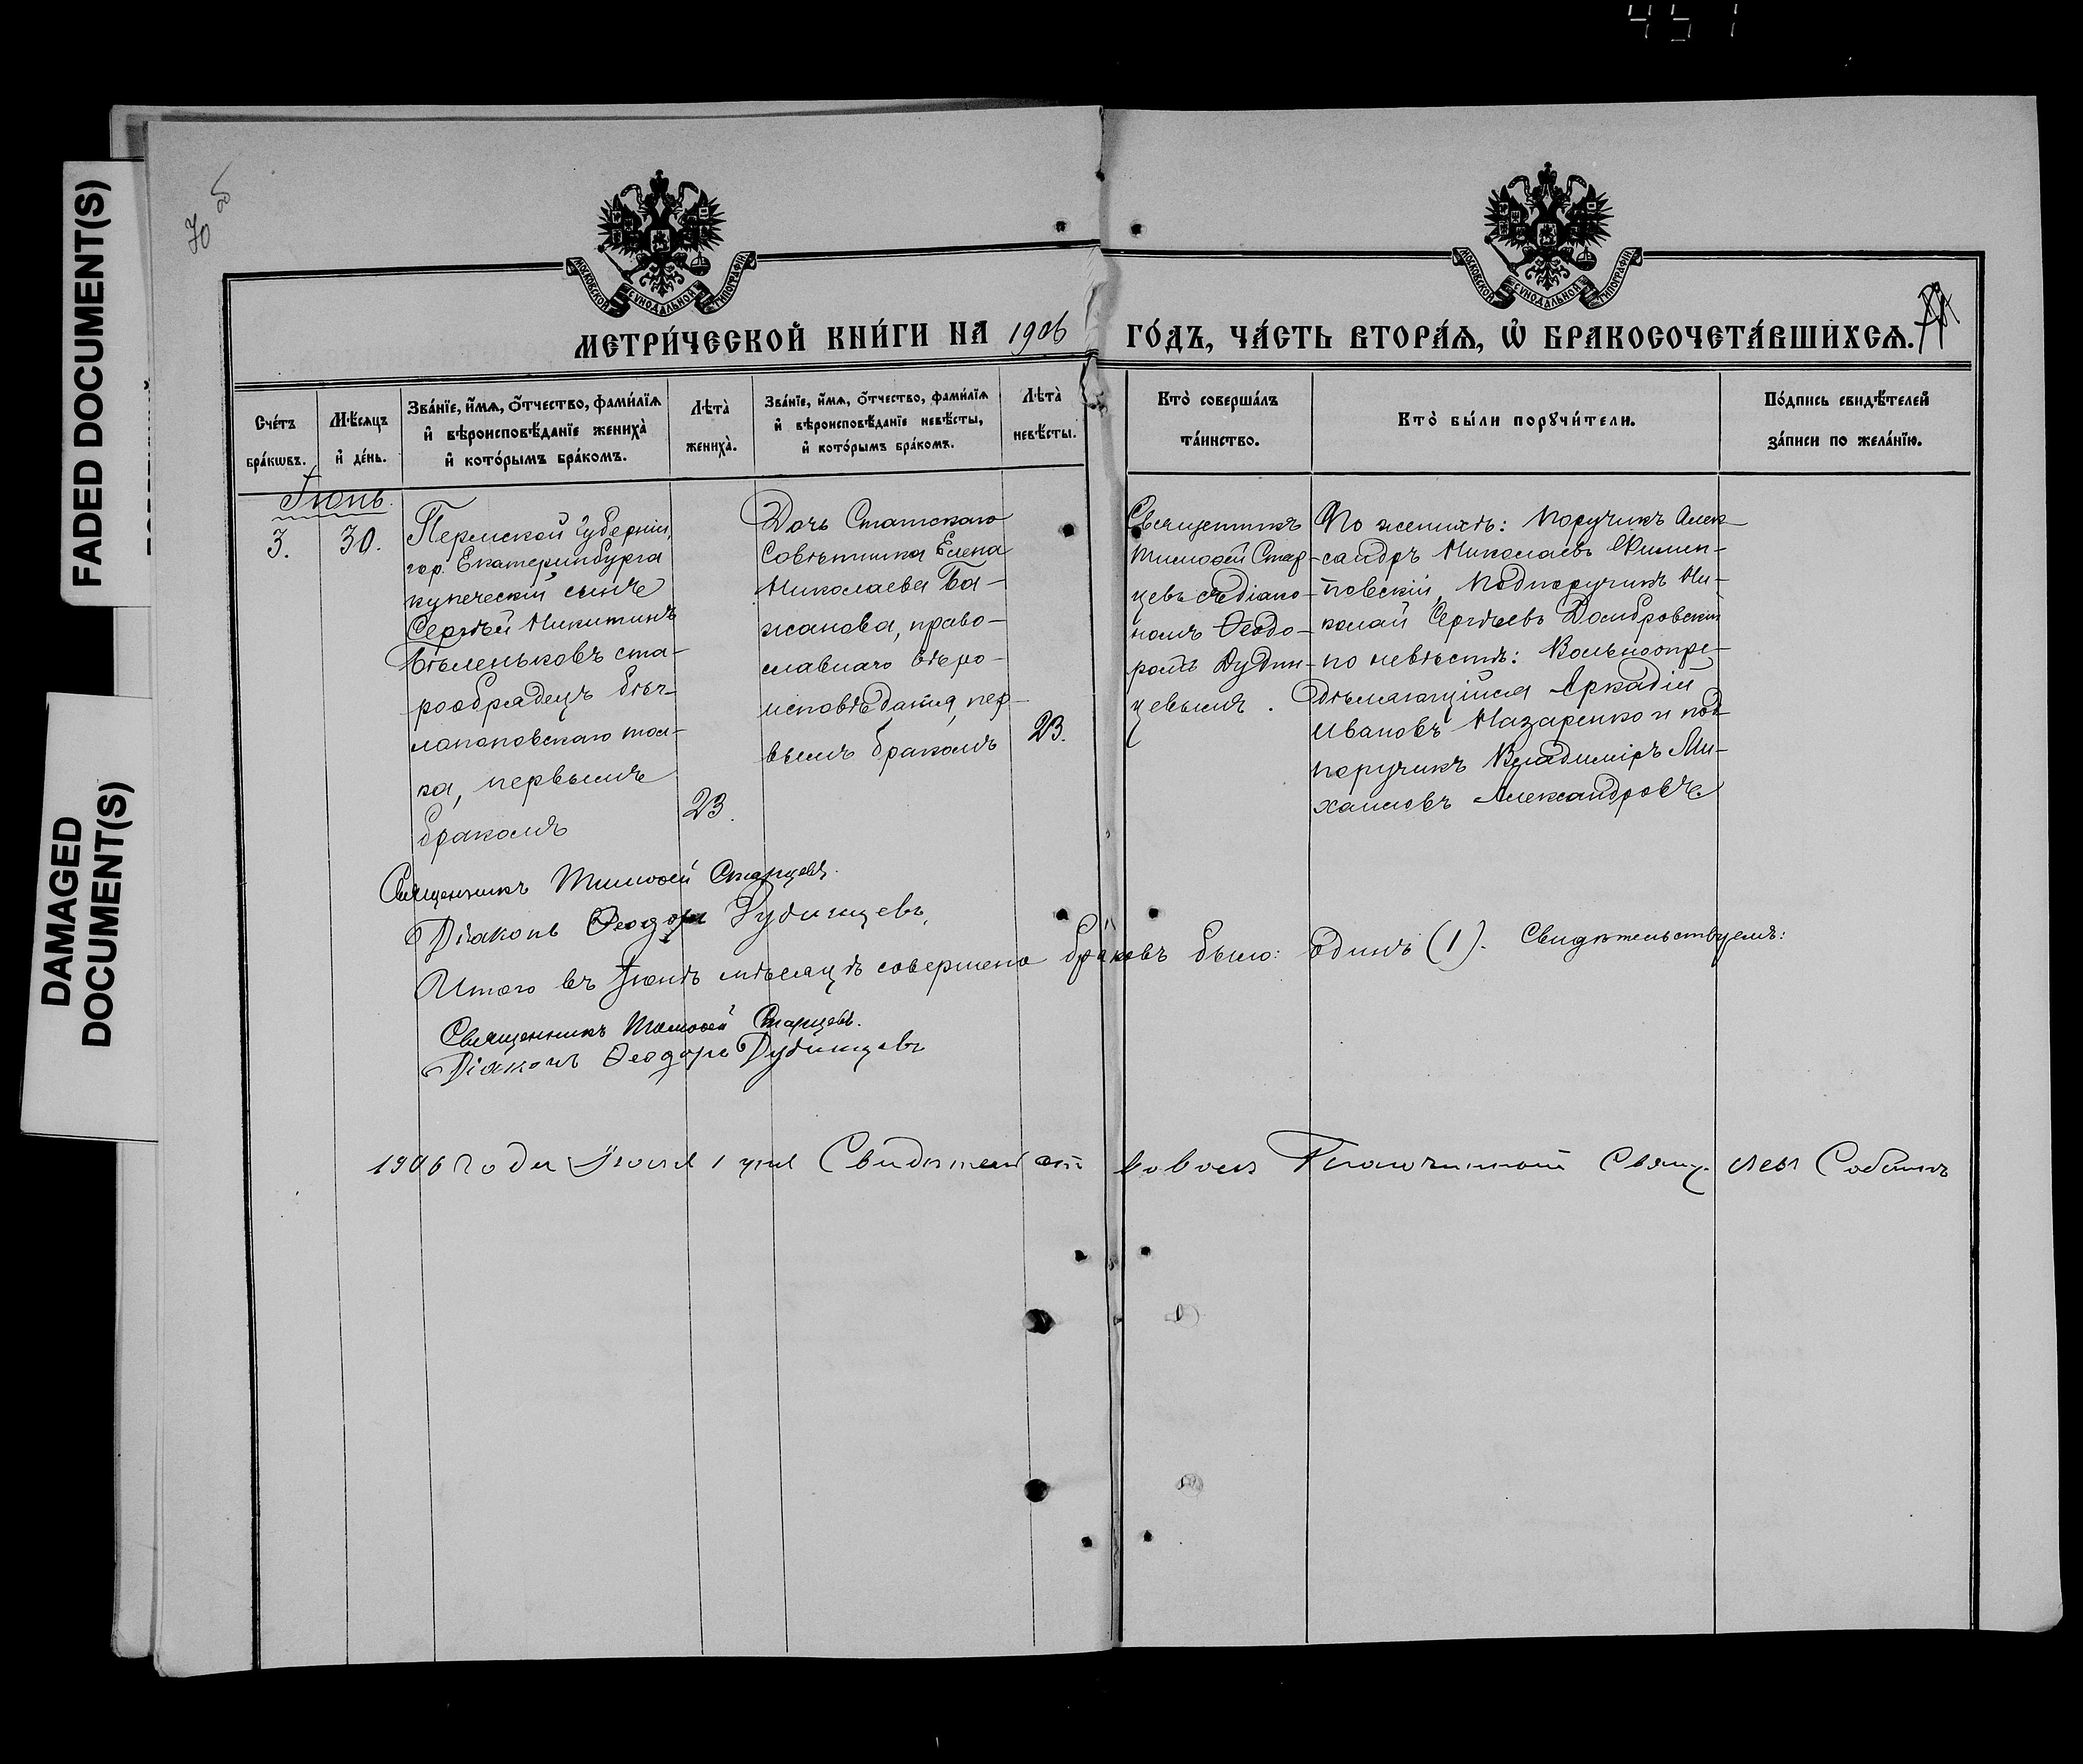 451
70 об
FADED DOCUMENT(S)
DAMAGED
DOCUMENT(S)
МОСКОВСКОЙ СѴНОДАЛЬНОЙ ТИПОГРАФІИ
МОСКОВСКОЙ СѴНОДАЛЬНОЙ ТИПОГРАФІИ
МЕТРИ́ЧЕСКОЙ КНИ́ГИ НА 1906 ГО́ДЪ, ЧА́СТЬ ВТОРА́Ѧ, Ѽ БРАКОСОЧЕТА́ВШИХСѦ.
Сче́тъ
бра́кѡвъ.
Мѣ́сяцъ
и҆ де́нь.
Зва́нїе, и҆́мѧ, ѻ҆́тчество, фами́лїѧ
и҆ вѣроисповѣ́данїе жениха̀
и҆ кото́рымъ бра́комъ.
Лѣта̀
жениха̀.
Зва́нїе, и҆́мѧ, ѻ҆́тчество, фами́лїѧ
и҆ вѣроисповѣ́данїе невѣ́сты,
и҆ кото́рымъ бра́комъ.
Лѣта̀
невѣ́сты.
Кто̀ соверша́лъ
та́инство.
Кто̀ бы́ли порꙋчи́тели.
По́дпись свидѣ́телей
за́писи по жела́нїю.
Іюнь.
3.
30.
Пермской губерніи,
гор. Екатеринбурга
купеческій сынъ
Сергѣй Никитинъ
Бѣленьковъ ста-
рообрядецъ бѣг-
лопоповскаго тол-
ка, первымъ
бракомъ
23.
Дочь Статскаго
Совѣтника Елена
Николаева Ба-
жанова, право-
славнаго вѣро-
исповѣданія, пер-
вымъ бракомъ
23.
Священникъ
Тимоѳей Стар-
цевъ съ діако-
номъ Ѳеодо-
ромъ Дудин-
цевымъ.
По женихѣ: Поручикъ Алек-
сандръ Николаевъ Филип-
повскій, Подпоручикъ Ни-
колай Сергѣевъ Домбровскій
по невѣстѣ: Вольноопре-
дѣляющійся Аркадій
Ивановъ Назаренко и под-
поручикъ Владиміръ Ми-
хаиловъ Александровъ
Священникъ Тимоѳей Старцевъ.
Діаконъ Ѳеодоръ Дудинцевъ.
Итого въ Іюнѣ мѣсяцѣ совершено браковъ было: одинъ (1). Свидѣтельствуемъ:
Священникъ Тимоѳей Старцевъ.
Діаконъ Ѳеодоръ Дудинцевъ
1906 года Іюля 1 дня Свидѣтельствовалъ Благочинный Свящ.